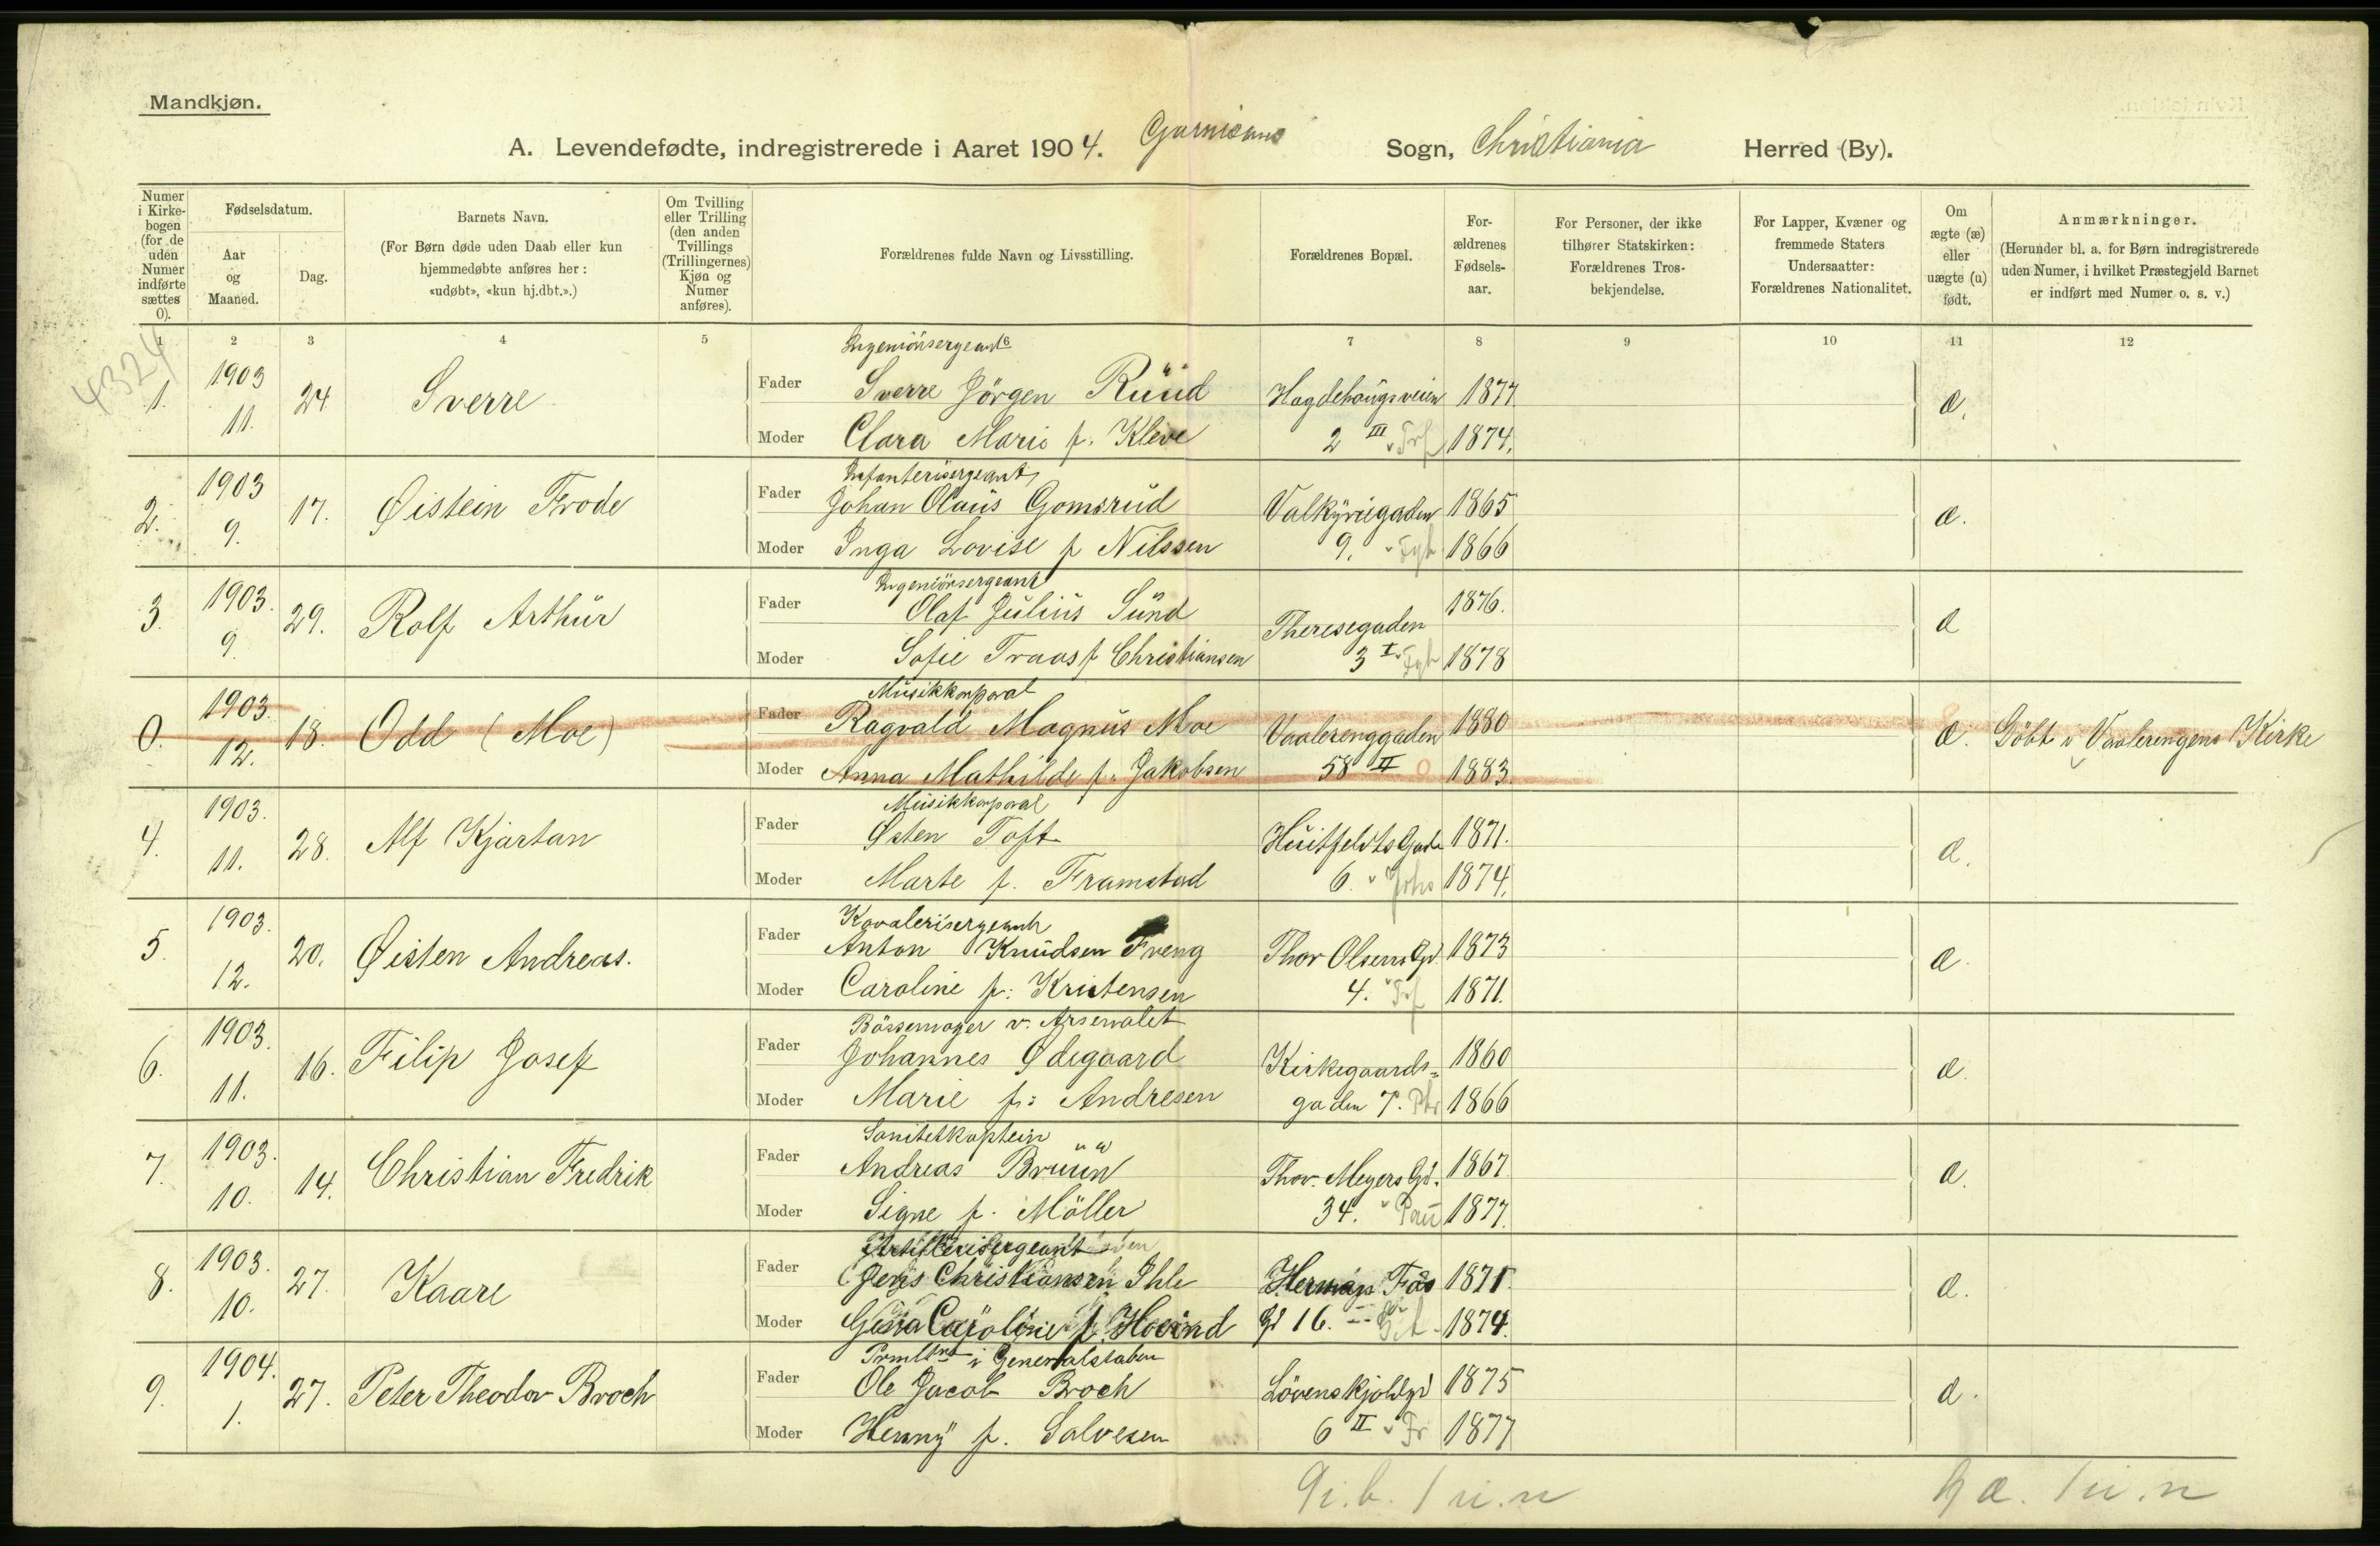 Mandkjøn.
A. Levendefødte, indregistrerede i Aaret 1904. Garnisons Sogn, Christiania Herred (By).
Numer i Kirke-bogen (for de uden Numer indførte sættes 0).
Fødselsdatum.
Aar og Maaned.
Dag.
Barnets Navn.
(For Børn døde uden Daab eller kun hjemmedøbte anføres her: «udøbt», «kun hj.dbt.».)
Om Tvilling eller Trilling (den anden Tvillings (Trillingernes) Kjøn og Numer anføres).
Forældrenes fulde Navn og Livsstilling.
Forældrenes Bopæl.
For-ældrenes Fødsels-aar.
For Personer, der ikke tilhører Statskirken: Forældrenes Tros-bekjendelse.
For Lapper, Kvæner og fremmede Staters Undersaatter: Forældrenes Nationalitet.
Om ægte (æ) eller uægte (u) født.
Anmærkninger.
(Herunder bl. a. for Børn indregistrerede uden Numer, i hvilket Præstegjeld Barnet er indført med Numer o. s. v.)
1 2 3 4 5 6 7 8 9 10 11 12
4324
Ingeniörsergeant
1. 1903 11. 24 Sverre Fader Sverre Jörgen Ruud Hagdehougsveien 1877. æ.
Moder Clara Marie f. Kleve 2 III Frf 1874.
Infanterisergeant
2. 1903 9. 17. Øistein Frode Fader Johan Olaus Gomsrud Valkyriegaden 1865 æ.
Moder Inga Lovise f Nilssen 9. 1866
Ingeniörsergeant
3. 1903. 9. 29. Rolf Arthur Fader Olaf Julius Sund Theresegaden 1876. æ
Moder Sofie Traas f Christiansen 3 I 1878
Musikkorporal
0. 1903. 12. 18. Odd (Moe) Fader Ragvald Magnus Moe Vaalerenggaden 1880 æ. Döbt i Vaalerengens Kirke
Moder Anna Mathilde f. Jakobsen 58 II 0 1883.
Musikkorporal
4. 1903. 11. 28. Alf Kjartan Fader Østen Toft Huitfeldts Gade 1871. æ.
Moder Marte f. Framstad 6. Johs 1874.
Kavalerisergeant
5. 1903. 12. 20. Øisten Andreas. Fader Anton Knudsen Fveng Thor Olsens Gd. 1873 æ.
Moder Caroline f: Kristensen 4. 1871.
Bössemager v. Arsenalet
6. 1903. 11. 16. Filip Josef Fader Johannes Ødegaard Kirkegaards= 1860 æ.
Moder Marie f: Andresen gaden 7. 1866
Sanitetkaptein
7. 1903. 10. 14. Christian Fredrik Fader Andreas Bruun Thov. Meyers Gd. 1867. æ.
Moder Signe f. Möller 34. Pau 1877.
Artillerisergeant
8. 1903. 10. 27. Kaare Fader Jens Christiansen Ihle Hermans Fos 1871. æ.
Moder Caroline f. Hovind Gd 16. 1874.
Prmltnt i Generalstaben
9. 1904. 1. 27. Peter Theodor Broch Fader Ole Jacob Broch Lövenskjoldgd 1875 æ.
Moder Henny f. Salvesen 6 II Fr 1877
9 i.b. 1 u.n
9 æ. 1 u.n